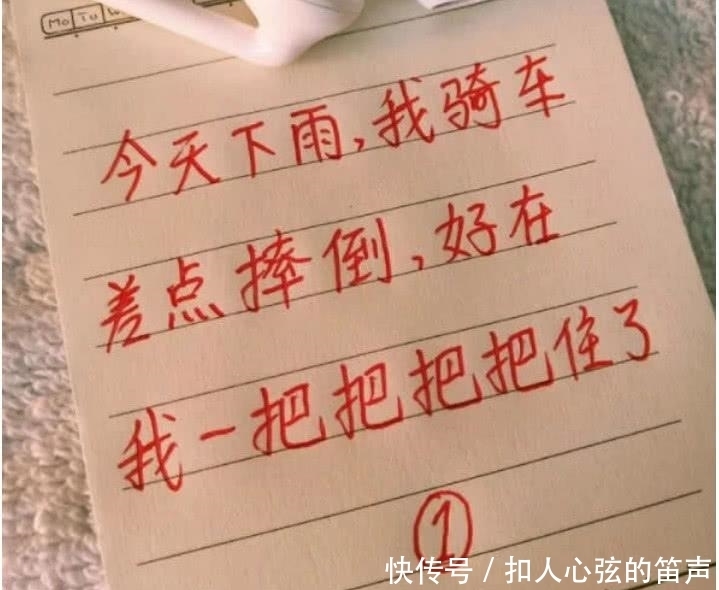 Mo Tu W
今天下雨,我骑车
差点摔倒,好在
我一把把把把住了
①
快传号 / 扣人心弦的笛声